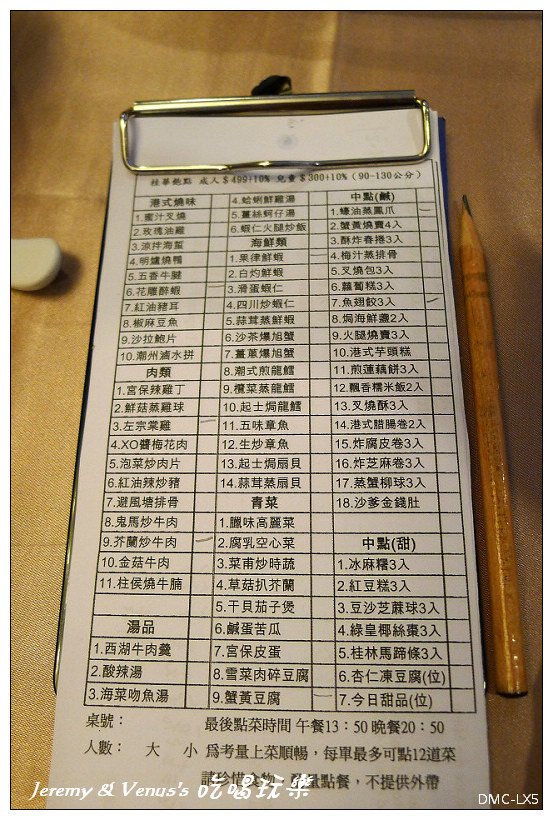 桂華飽點 成人$499+10% 兒童$300+10%(90-130公分)
港式燒味
1.蜜汁叉燒
2.玫瑰油雞
3.涼拌海蜇
4.明爐燒鴨
5.五香牛腱
6.花雕醉蝦
7.紅油豬耳
8.椒麻豆魚
9.沙拉鮑片
10.潮州滷水拼
肉類
1.宮保辣雞丁
2.鮮菇蒸雞球
3.左宗棠雞
4.XO醬梅花肉
5.泡菜炒肉片
6.紅油辣炒豬
7.避風塘排骨
8.鬼馬炒牛肉
9.芥蘭炒牛肉
10.金菇牛肉
11.柱侯燒牛腩
湯品
1.西湖牛肉羹
2.酸辣湯
3.海菜吻魚湯
4.蛤蜊鮮雞湯
5.薑絲蚵仔湯
6.蝦仁火腿炒飯
海鮮類
1.果律鮮蝦
2.白灼鮮蝦
3.滑蛋蝦仁
4.四川炒蝦仁
5.蒜茸蒸鮮蝦
6.沙茶爆旭蟹
7.薑蔥爆旭蟹
8.潮式煎龍鱈
9.欖菜蒸龍鱈
10.起士焗龍鱈
11.五味章魚
12.生炒章魚
13.起士焗扇貝
14.蒜茸蒸扇貝
青菜
1.臘味高麗菜
2.腐乳空心菜
3.菜甫炒時蔬
4.草菇扒芥蘭
5.干貝茄子煲
6.鹹蛋苦瓜
7.宮保皮蛋
8.雪菜肉碎豆腐
9.蟹黃豆腐
中點(鹹)
1.蠔油蒸鳳爪
2.蟹黃燒賣4入
3.酥炸春捲3入
4.梅汁蒸排骨
5.叉燒包3入
6.蘿蔔糕3入
7.魚翅餃3入
8.焗海鮮盞2入
9.火腿燒賣3入
10.港式芋頭糕
11.煎蓮藕餅3入
12.飄香糯米飯2入
13.叉燒酥3入
14.港式腊腸卷2入
15.炸腐皮卷3入
16.炸芝麻卷3入
17.蒸蟹柳球3入
18.沙爹金錢肚
中點(甜)
1.冰麻糬3入
2.紅豆糕3入
3.豆沙芝蔴球3入
4.綠皇椰絲棗3入
5.桂林馬蹄條3入
6.杏仁凍豆腐(位)
7.今日甜品(位)
桌號: 最後點菜時間 午餐13:50 晚餐20:50
人數: 大 小 爲考量上菜順暢,每單最多可點12道菜
請珍惜食物,量點餐,不提供外帶
Jeremy & Venus's 吃喝玩樂
DMC-LX5